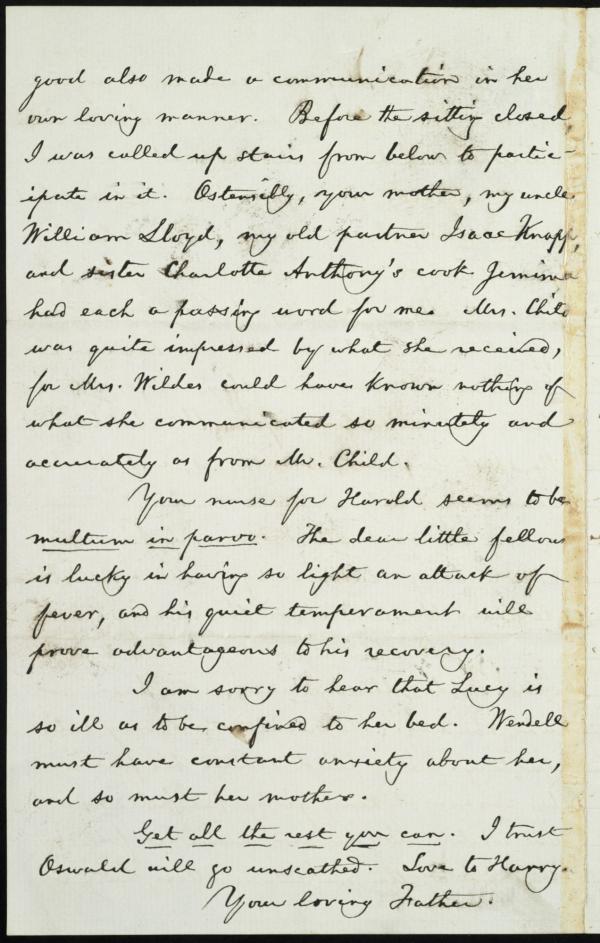 good also made a communication in her
own loving manner. Before the sitting closed,
I was called up stairs from below to partic-
ipate in it. Ostensibly, your mother, my uncle
William Lloyd, my old partner Isaac Knapp,
and sister Charlotte Anthony's cook Jemima
had each a passing word for me. Mrs. Child
was quite impressed by what she received,
for Mrs. Wildes could have known nothing of
what she communicated so minutely and
accurately as from Mr. Child.
Your nurse for Harold seems to be
multum in parvo. The dear little fellow
is lucky in having so light an attack of
fever, and his quiet temperament will
prove advantageous to his recovery.
I am sorry to hear that Lucy is
so ill as to be confined to her bed. Wendell
must have constant anxiety about her,
and so must her mother.
Get all the rest you can. I trust
Oswald will go unscathed. Love to Harry.
Your loving Father.